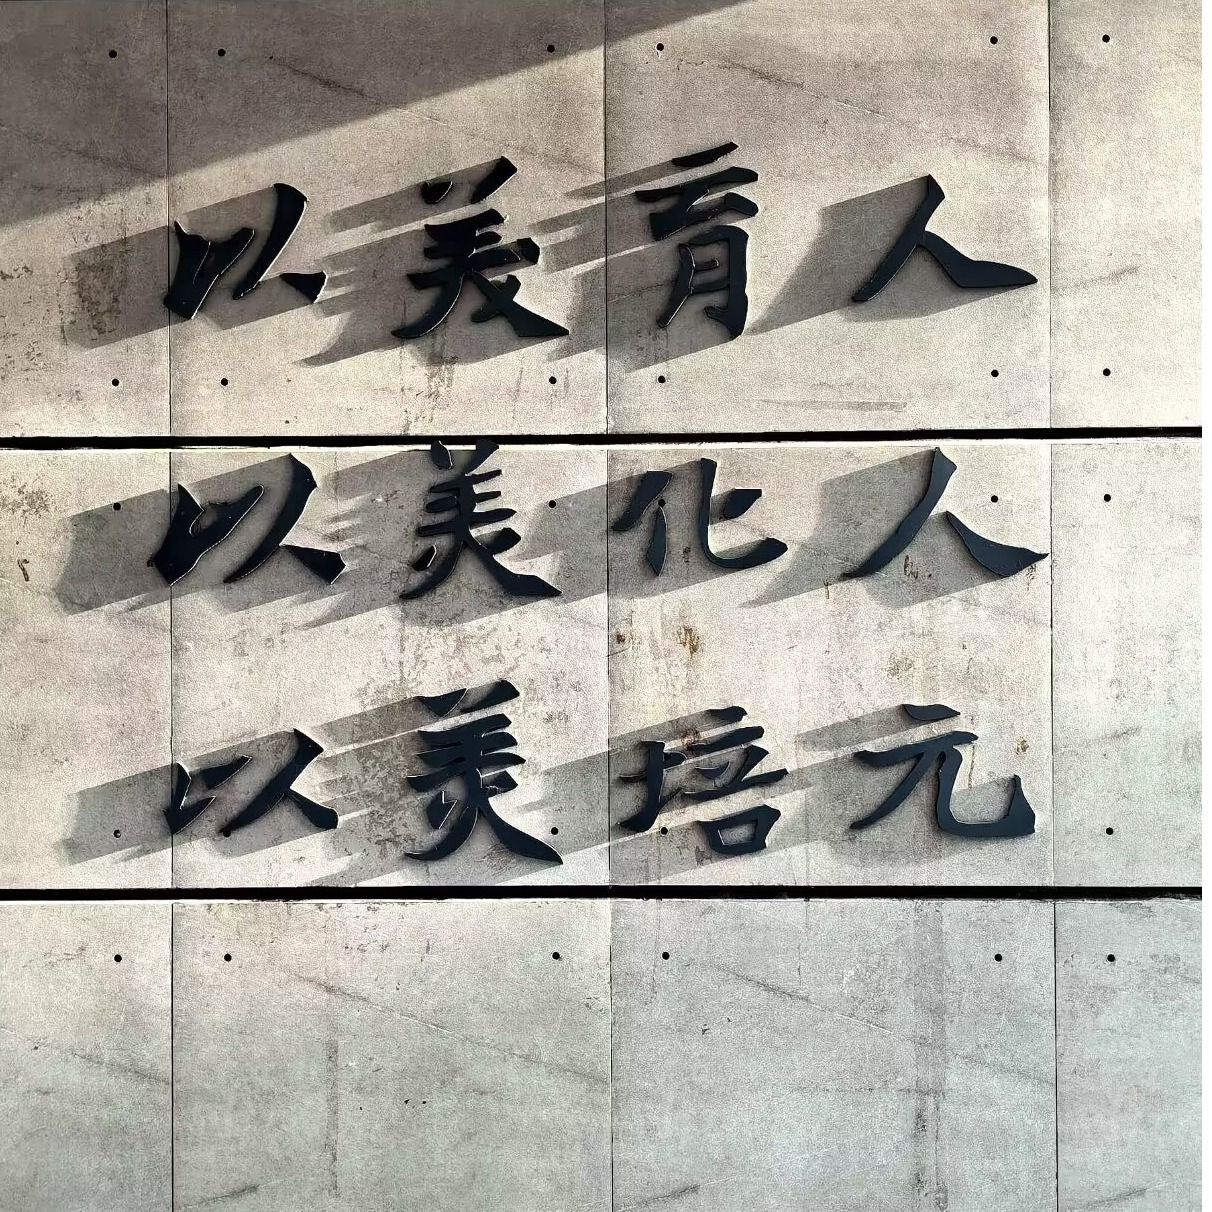 以美育人
以美化人
以美培元